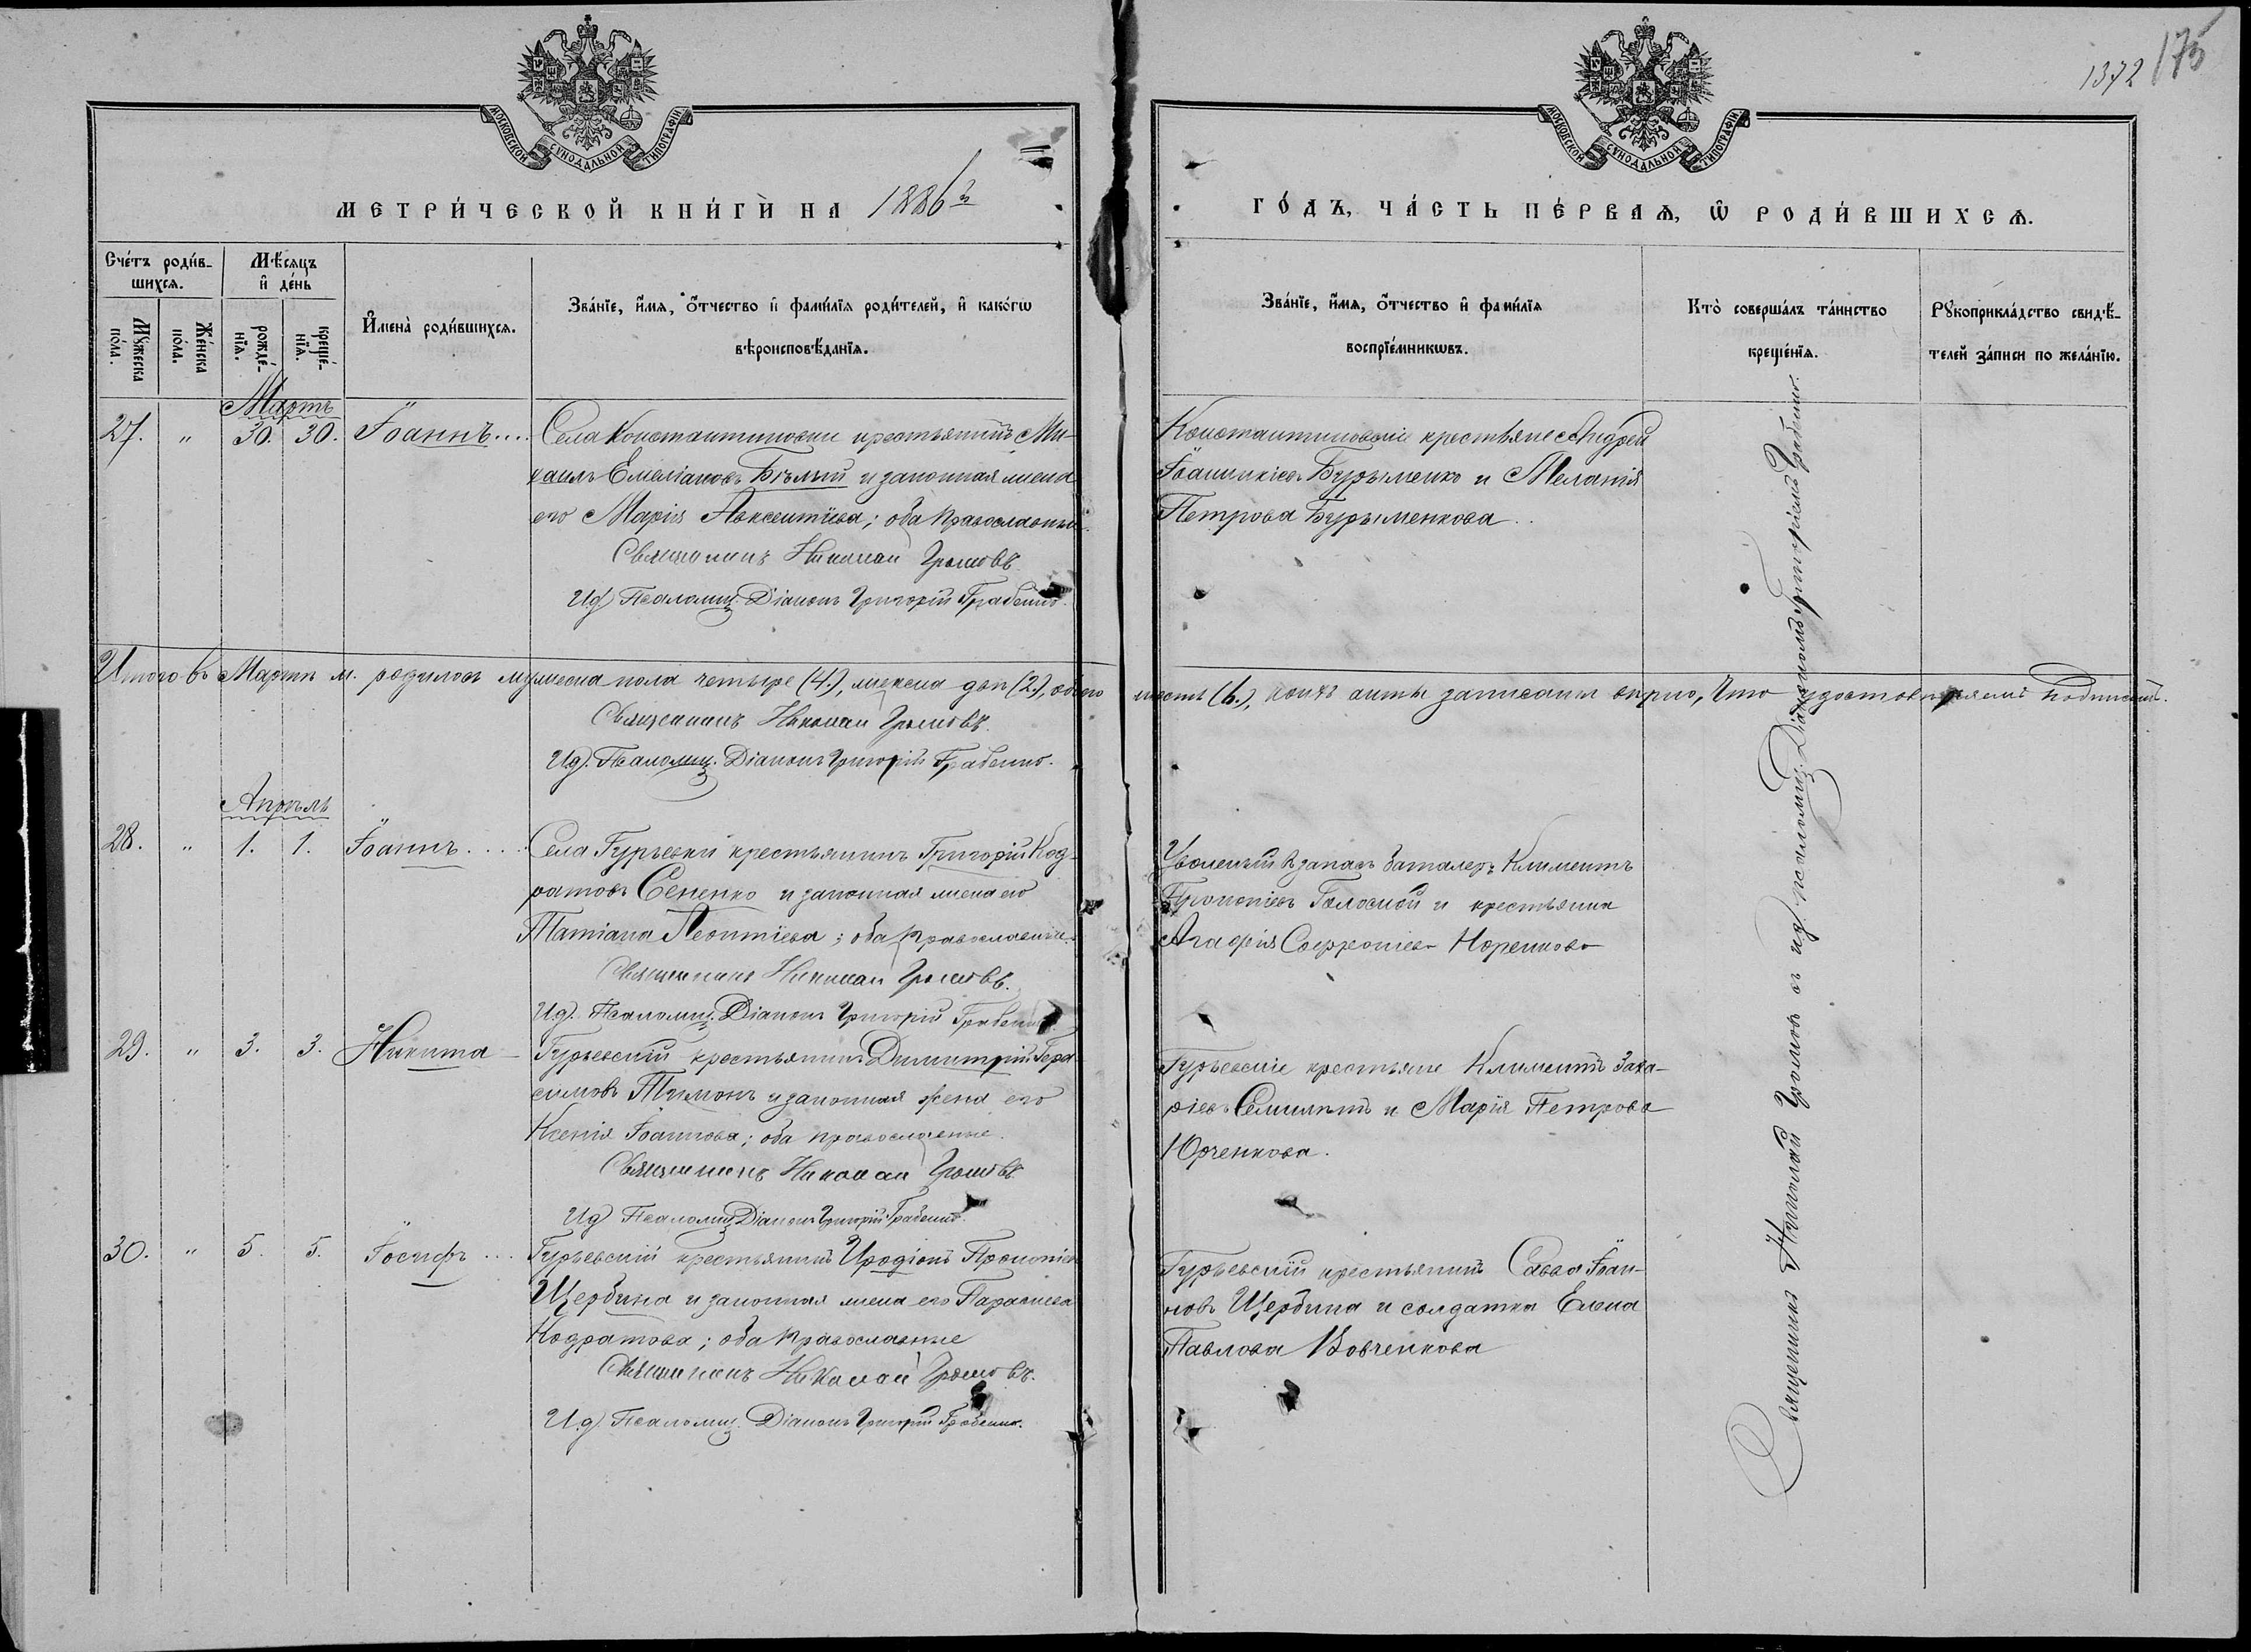 1372 175
МОСКОВСКОЙ СѴНОДАЛЬНОЙ ТИПОГРАФІИ
МОСКОВСКОЙ СѴНОДАЛЬНОЙ ТИПОГРАФІИ
МЕТРИ́ЧЕСКОЙ КНИ́ГИ НА 1886й
ГО́ДЪ, ЧА́СТЬ ПЕ́РВАѦ, Ѡ РОДИ́ВШИХСѦ.
Сче́тъ роди́в-
шихсѧ.
Мꙋжеска по́ла.
Же́нска по́ла.
Мѣ́сѧцъ
и҆ де́нь
рожде́-
нїѧ.
креще́-
нїѧ.
И҆мена̀ роди́вшихсѧ.
Зва́нїе, и҆́мѧ, ѻ҆́тчество и҆ фами́лїѧ роди́телей, и҆ како́гѡ
вѣроисповѣ́данїѧ.
Зва́нїе, и҆́мѧ, ѻ҆́тчество и҆ фами́лїѧ
воспрїе́мникѡвъ.
Кто̀ соверша́лъ та́инство
креще́нїѧ.
Рꙋкоприкла́дство свидѣ́-
телей за́писи по жела́нїю.
Мартъ
27. " 30. 30. Іоаннъ....
Села Константиновки крестьянинъ Ми-
хаилъ Емеліановъ Бѣлый и законная жена
его Марія Авксентіева; оба православные.
Священникъ Николай Громовъ.
И.д. Псаломщ. Діаконъ Григорій Грабенко.
Константиновскіе крестьяне Андрей
Іоанникіевъ Бурыменко и Меланія
Петрова Бурыменкова..
Итого въ Мартѣ м. родилось мужеска пола четыре (4.), женска двѣ (2.), обоего шесть (6.), коихъ акты записаны вѣрно, что удостовѣряемъ подписомъ.
Священникъ Николай Громовъ.
И.д. Псаломщ. Діаконъ Григорій Грабенко.
Апрѣль
28. " 1. 1. Іоаннъ....
Села Гурьевки крестьянинъ Григорій Код-
ратовъ Сененко и законная жена его
Татіана Леонтіева; оба православные.
Священникъ Николай Громовъ.
И.д. Псаломщ. Діаконъ Григорій Грабенко.
Уволенный въ запасъ Баталеръ Климентъ
Прокопіевъ и крестьянка
Агафія Софроніева
29. " 3. 3. Никита
Гурьевскій крестьянинъ Димитрій Гера-
симовъ Тимонъ и законная жена его
Ксенія Іоаннова; оба православные.
Священникъ Николай Громовъ.
И.д. Псаломщ. Діаконъ Григорій Грабенко.
Гурьевскіе крестьяне Климентъ Заха-
ріевъ и Марія Петрова
Юрченкова.
30. " 5. 5. Іосифъ...
Гурьевскій крестьянинъ Иродіонъ Прокопіевъ
Щербина и законная жена его Параскева
Кодратова; оба православные
Священникъ Николай Громовъ.
И.д. Псаломщ. Діаконъ Григорій Грабенко.
Гурьевскій крестьянинъ Савва Іоан-
новъ Щербина и солдатка Елена
Павлова Вовченкова
Священникъ Николай Громовъ съ и.д. псаломщ. Діакономъ Григоріемъ Грабенко.